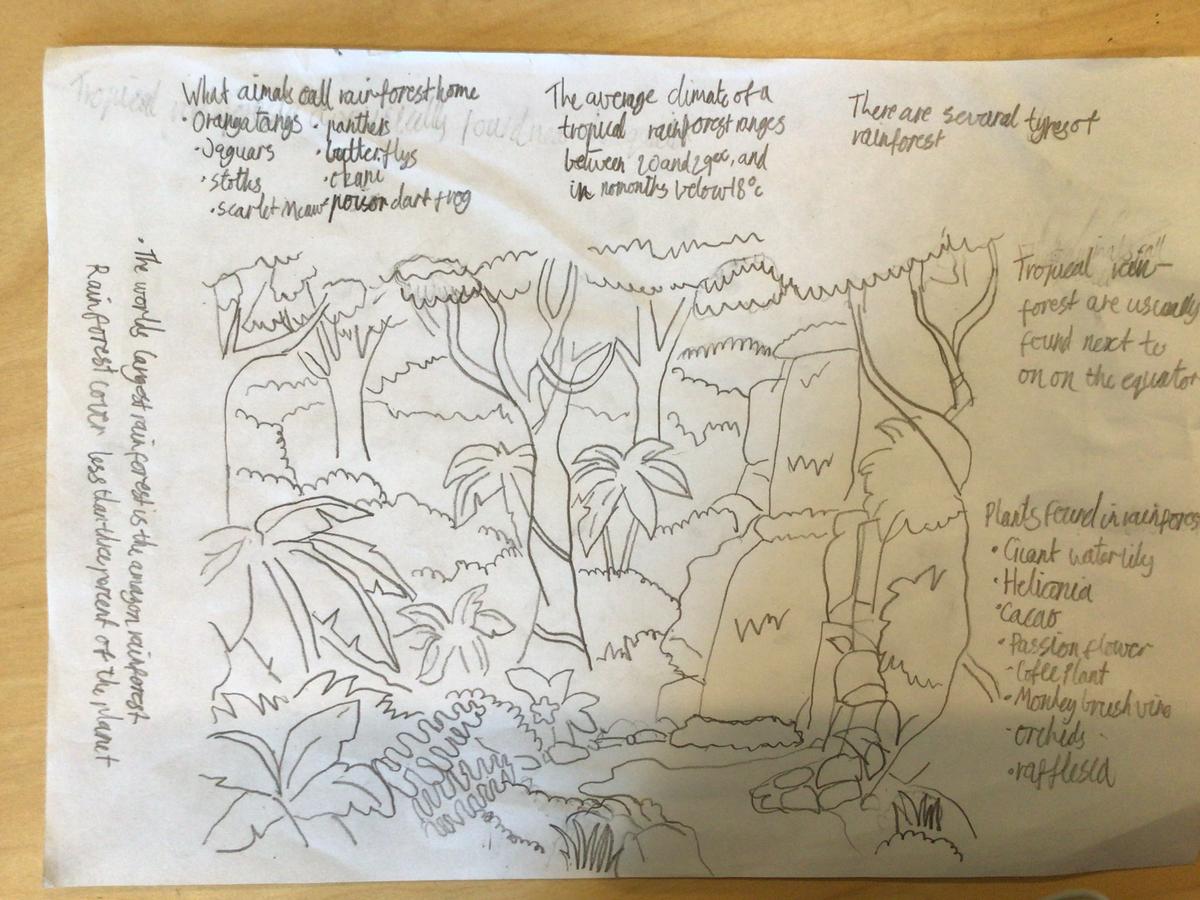 What aimals call rainforest home
• Orangatangs • panthers
• Jaguars • butterflys
• sloths • okapi
• scarlet Mcaw • poison dart frog
The average climate of a
tropical rainforest ranges
between 20 and 29°c, and
in no months below 18°c
There are several types of
rainforest
Tropical rain-
forest are usually
found next to
on on the equator
Plants found in rainfores
• Giant waterlily
• Heliconia
• Cacao
• Passion flower
- Coffee Plant
• Monkey brush vine
- orchids
• rafflesia
• The worlds largest rainforest is the amazon rainforest
Rainforest cover less than percent of the planet
Tropical found